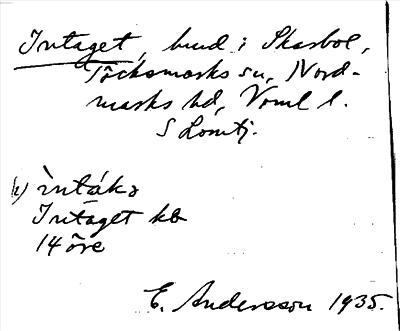 Intaget, hmd i Skarbol,
Töcksmarks sn, Nord-
marks hd, Vrml l.
S Lomtj.
k) ìntákə
Intaget kb
14 öre
E. Andersson 1935.